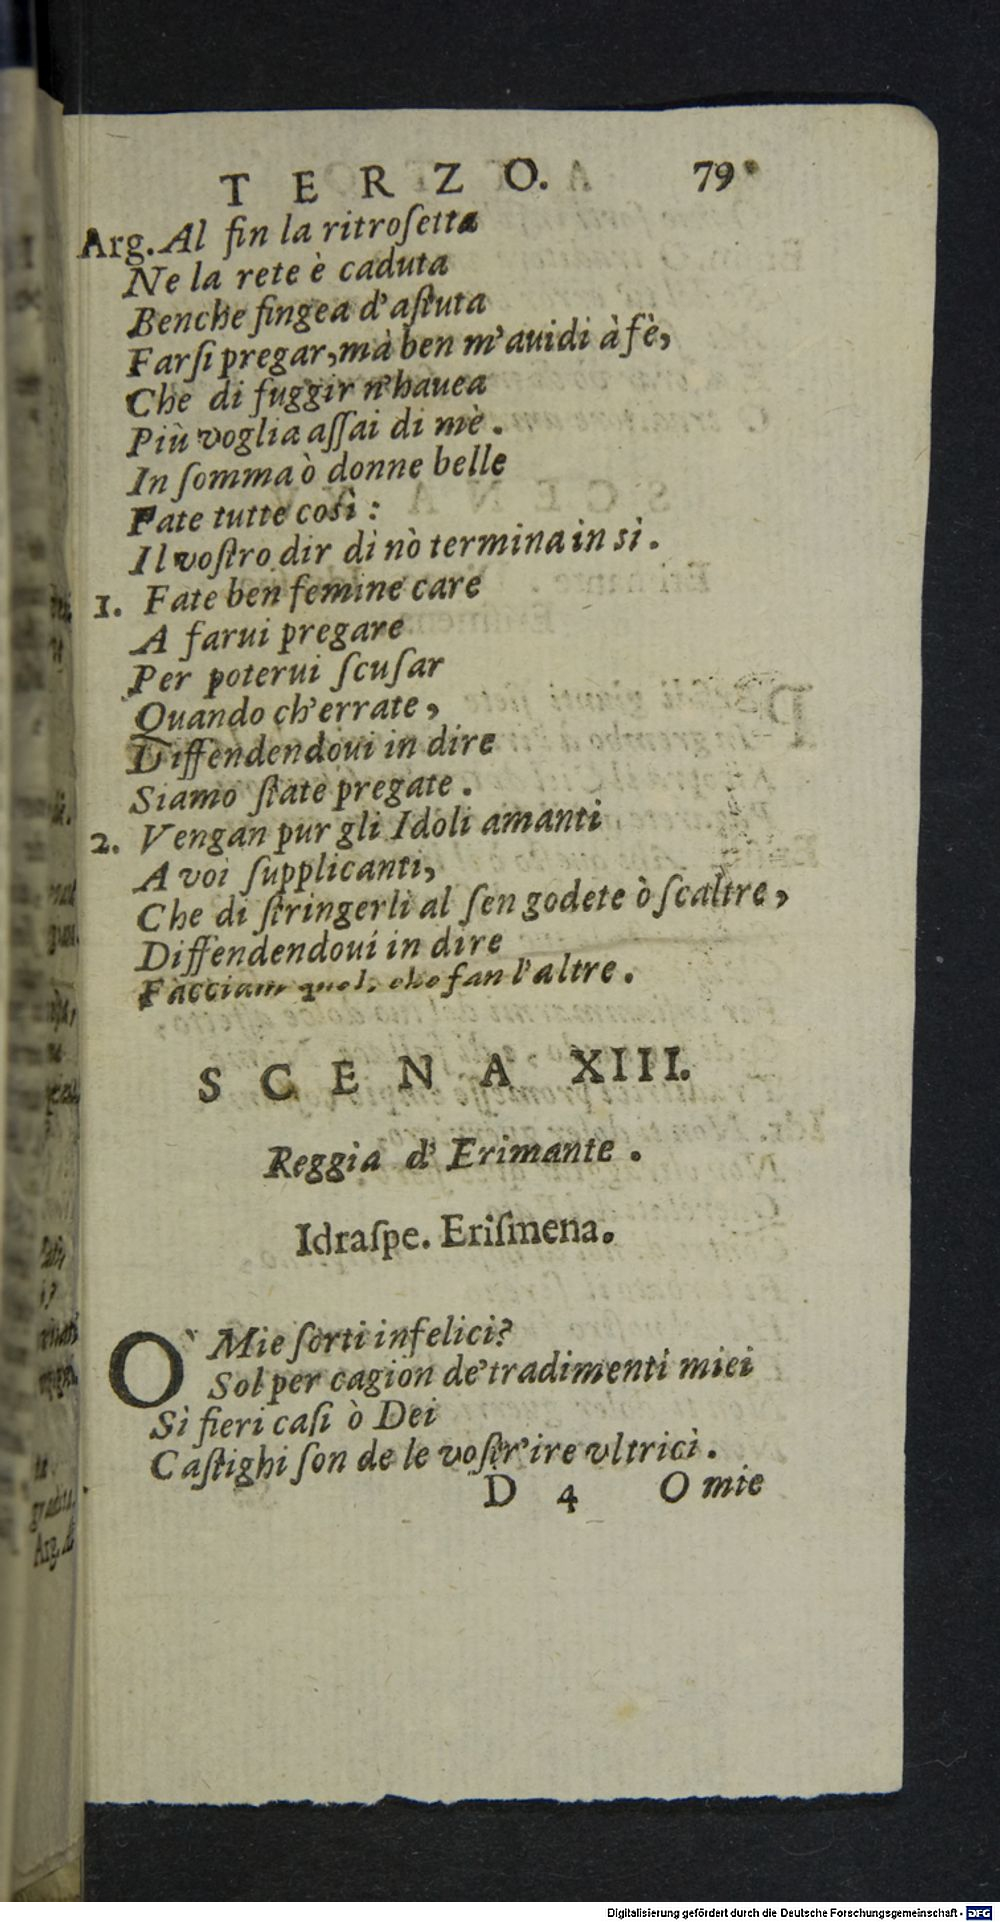 TERZO. 79
Arg. Al fin la ritroſetta
Ne la rete è caduta
Benche fingea d'aſtuta
Farſi pregar, mà ben m'auidi à fè,
Che di fuggir n'hauea
Più voglia aſſai di mè.
In ſomma ò donne belle
Fate tutte coſì:
Il voſtro dir di nò termina in sì.
1. Fate ben femine care
A farui pregare
Per poterui ſcuſar
Quando ch'errate,
Diffendendoui in dire
Siamo ſtate pregate.
2. Vengan pur gli Idoli amanti
A voi ſupplicanti,
Che di ſtringerli al ſen godete ò ſcaltre,
Diffendendoui in dire
Facciam quel, che fan l'altre.
SCENA XIII.
Reggia d'Erimante.
Idraſpe. Eriſmena.
O` Mie ſorti infelici?
Sol per cagion de' tradimenti miei
Sì fieri caſi ò Dei
Caſtighi ſon de le voſtr'ire vltrici.
D 4 O mie
Digitalisierung gefördert durch die Deutsche Forschungsgemeinschaft - DFG